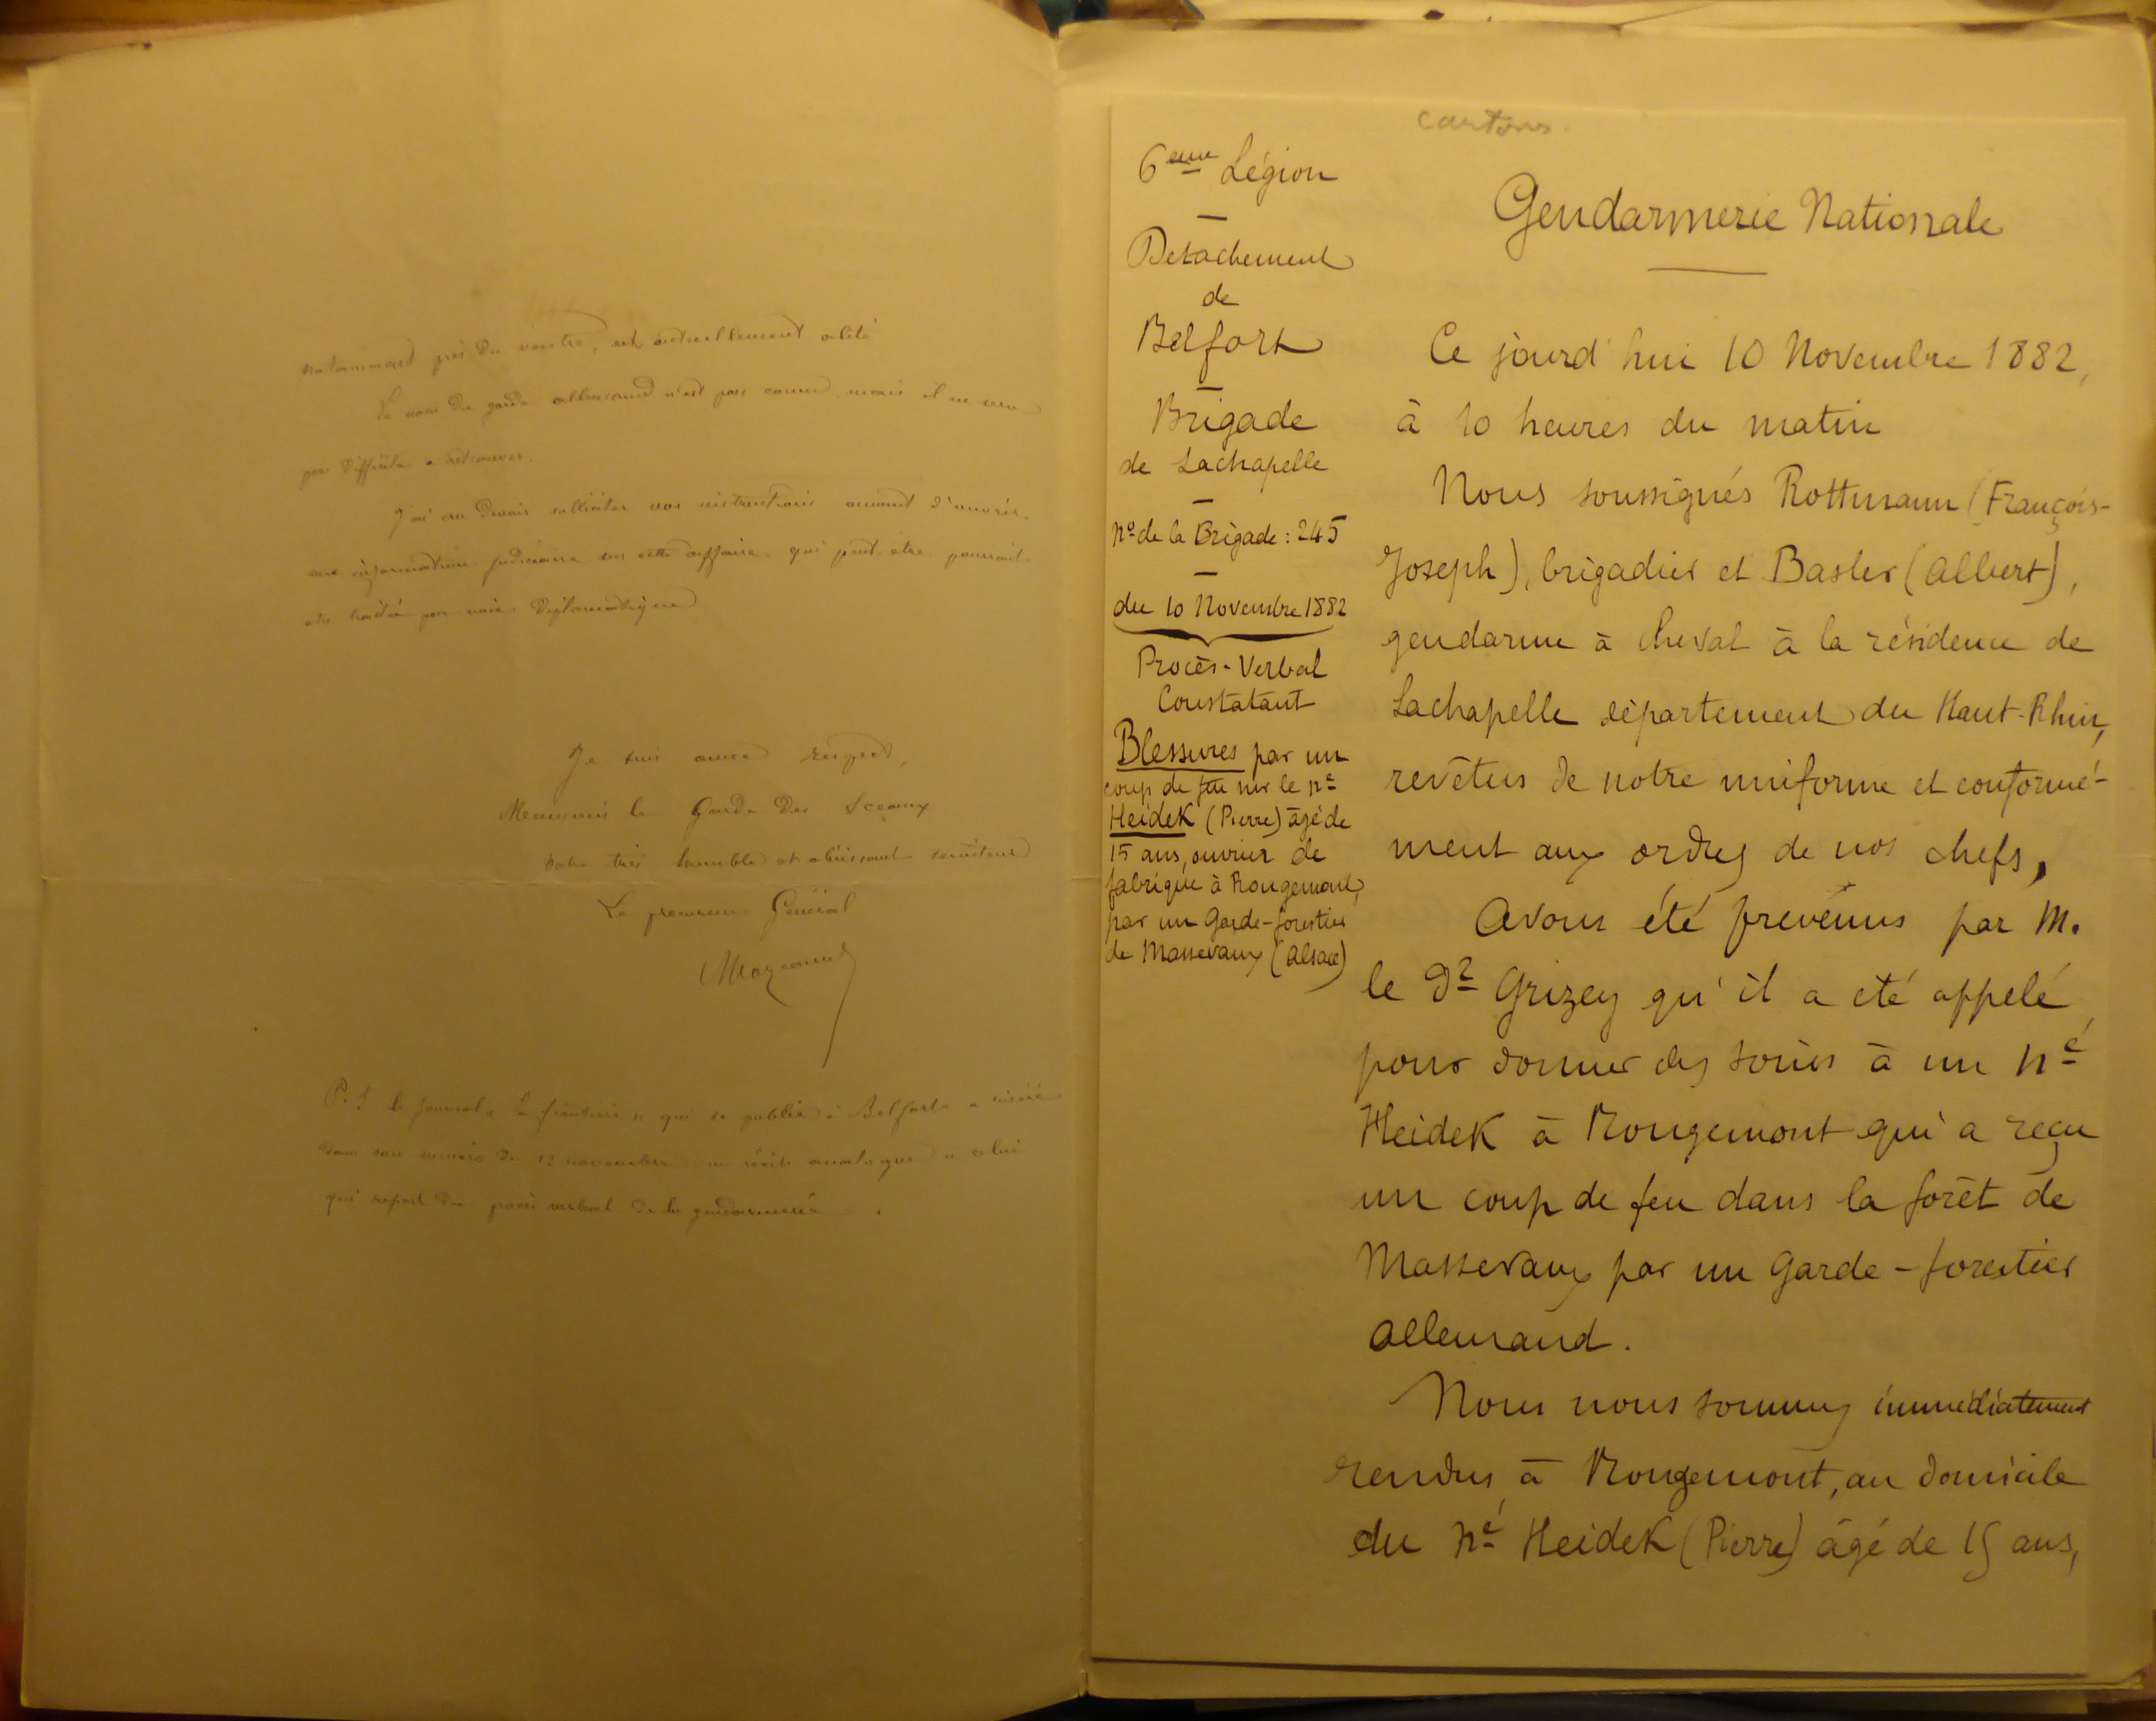 notamment près du ventre, est actuellement alité
Le nom du garde allemand n'est pas connu, mais il ne sera
pas difficile a retrouver.
J'ai cru devoir solliciter vos instructions avant d'ouvrir
une information judiciaire sur cette affaire qui peut-être pourrait
etre traitée par voie diplomatique
Je suis avec respect,
Monsieur le Garde des Sceaux
Votre très humble et obéissant serviteur
Le procureur Général
P.S le journal "la frontière" qui se publie à Belfort a inséré
dans son numéro du 12 novembre un récit analogue a celui
qui ressort du procès verbal de la gendarmerie.
cartons
6eme Légion
Detachement
de
Belfort
Brigade
de Lachapelle
No de la Brigade : 245
du 10 Novembre 1882
Procès-Verbal
Constatant
Blessures par un
coup de feu sur le né
Heidek (Pierre) âgé de
15 ans, ouvrier de
fabrique à Rougemont,
par un Garde-forestier
de Massevaux (Alsace)
Gendarmerie Nationale
Ce jourd'hui 10 Novembre 1882,
à 10 heures du matin
Nous soussignés Rottmann (François-
Joseph), brigadier et Basler (Albert),
gendarme à cheval à la résidence de
Lachapelle département du Haut-Rhin,
revêtus de notre uniforme et conformé-
ment aux ordres de nos chefs,
Avons été prévenus par M.
le Dr Grizey qu'il a été appelé
pour donner des soins à un né
Heidek à Rougemont qui a reçu
un coup de feu dans la forêt de
Massevaux par un Garde-forestier
Allemand.
Nous nous sommes immédiatement
rendus à Rougemont, au domicile
du né Heidek (Pierre) âgé de 15 ans,